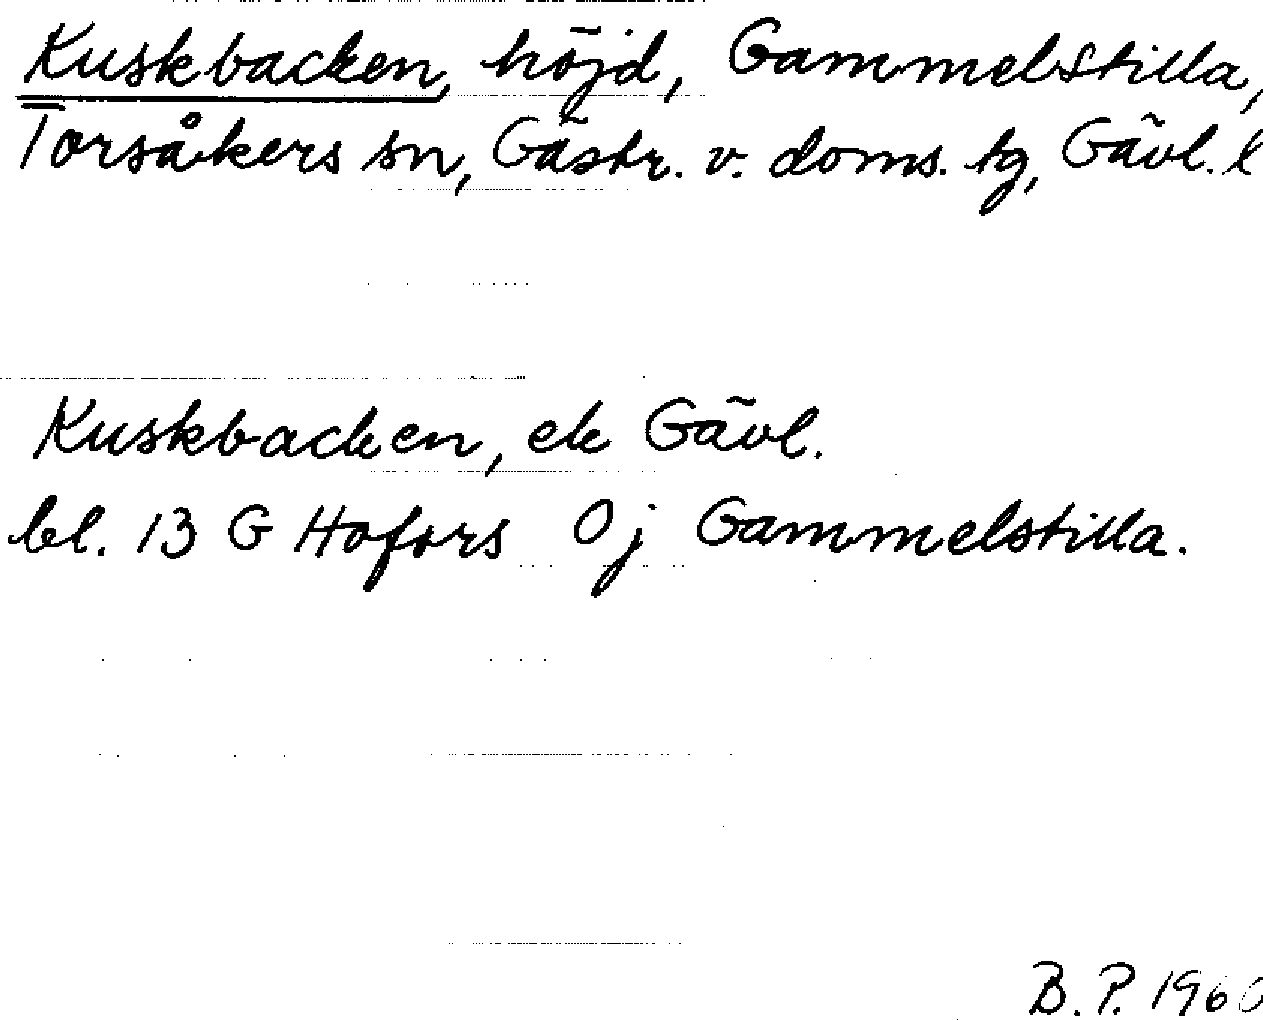 Kuskbacken, höjd, Gammelstilla,
Torsåkers sn, Gästr. v. doms. tg, Gävl. l
Kuskbacken, ek Gävl.
bl. 13 G Hofors 0j Gammelstilla.
B. P. 1960